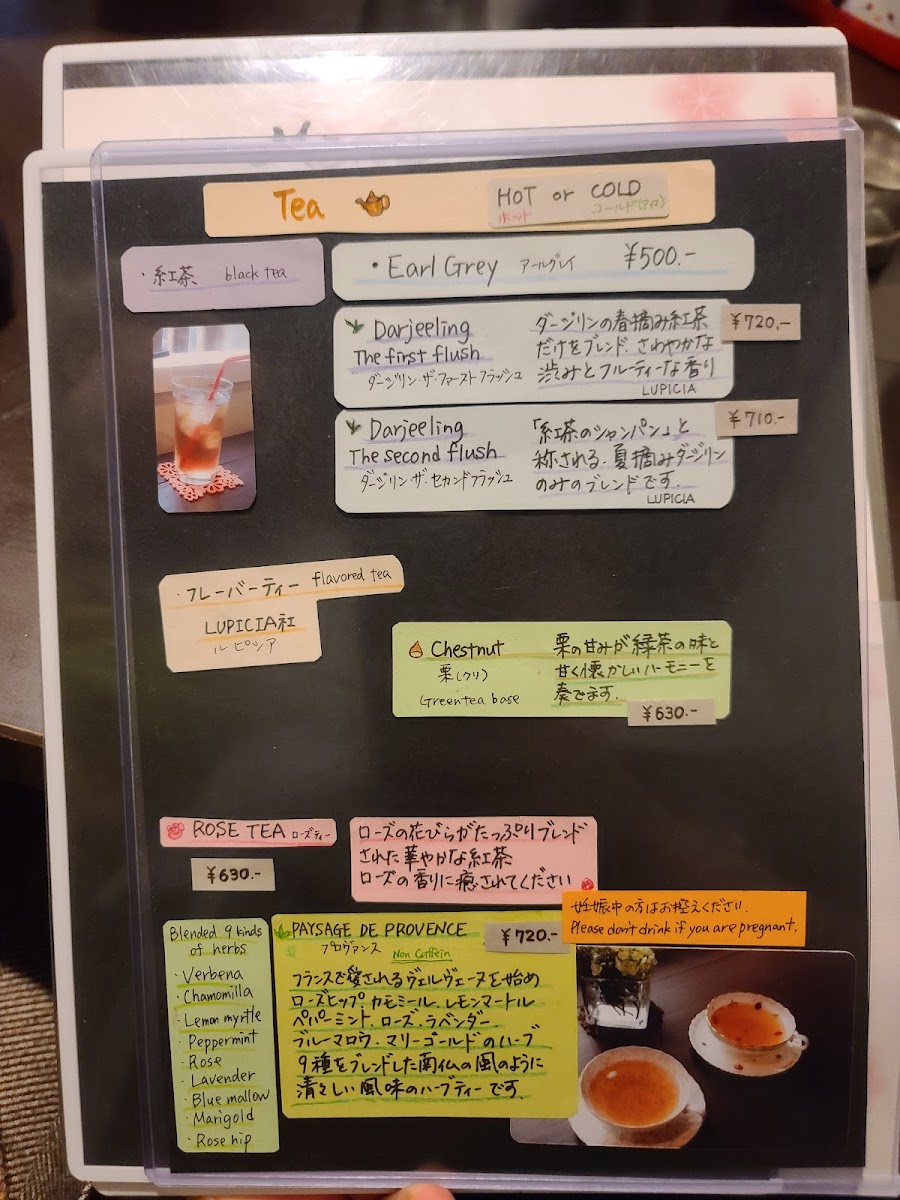 Tea
HOT or COLD
ホット コールド(アイス)
・紅茶 black tea
・Earl Grey アールグレイ ¥500.-
Darjeeling
The first flush
ダージリン・ザ・ファーストフラッシュ
ダージリンの春摘み紅茶
だけをブレンド.さわやかな
渋みとフルーティーな香り
LUPICIA
¥720.-
Darjeeling
The second flush
ダージリン・ザ・セカンドフラッシュ
「紅茶のシャンパン」と
称される.夏摘みダージリン
のみのブレンドです.
LUPICIA
¥710.-
・フレーバーティー flavored tea
LUPICIA社
ルピシア
Chestnut
栗(クリ)
Greentea base
栗の甘みが緑茶の味と
甘く懐かしいハーモニーを
奏でます.
¥630.-
ROSE TEA ローズティー
¥630.-
ローズの花びらがたっぷりブレンド
された華やかな紅茶
ローズの香りに癒されてください
妊娠中の方はお控えください.
Please don't drink if you are pregnant.
Blended 9 kinds
of herbs
・Verbena
・Chamomilla
・Lemon myrtle
・Peppermint
・Rose
・Lavender
・Blue mallow
・Marigold
・Rose hip
PAYSAGE DE PROVENCE
プロヴァンス Non Caffein
¥720.-
フランスで愛されるヴェルヴェーヌを始め
ローズヒップ.カモミール.レモンマートル
ペパーミント.ローズ.ラベンダー.
ブルーマロウ.マリーゴールドのハーブ
9種をブレンドした南仏の風のように
清々しい風味のハーブティーです.